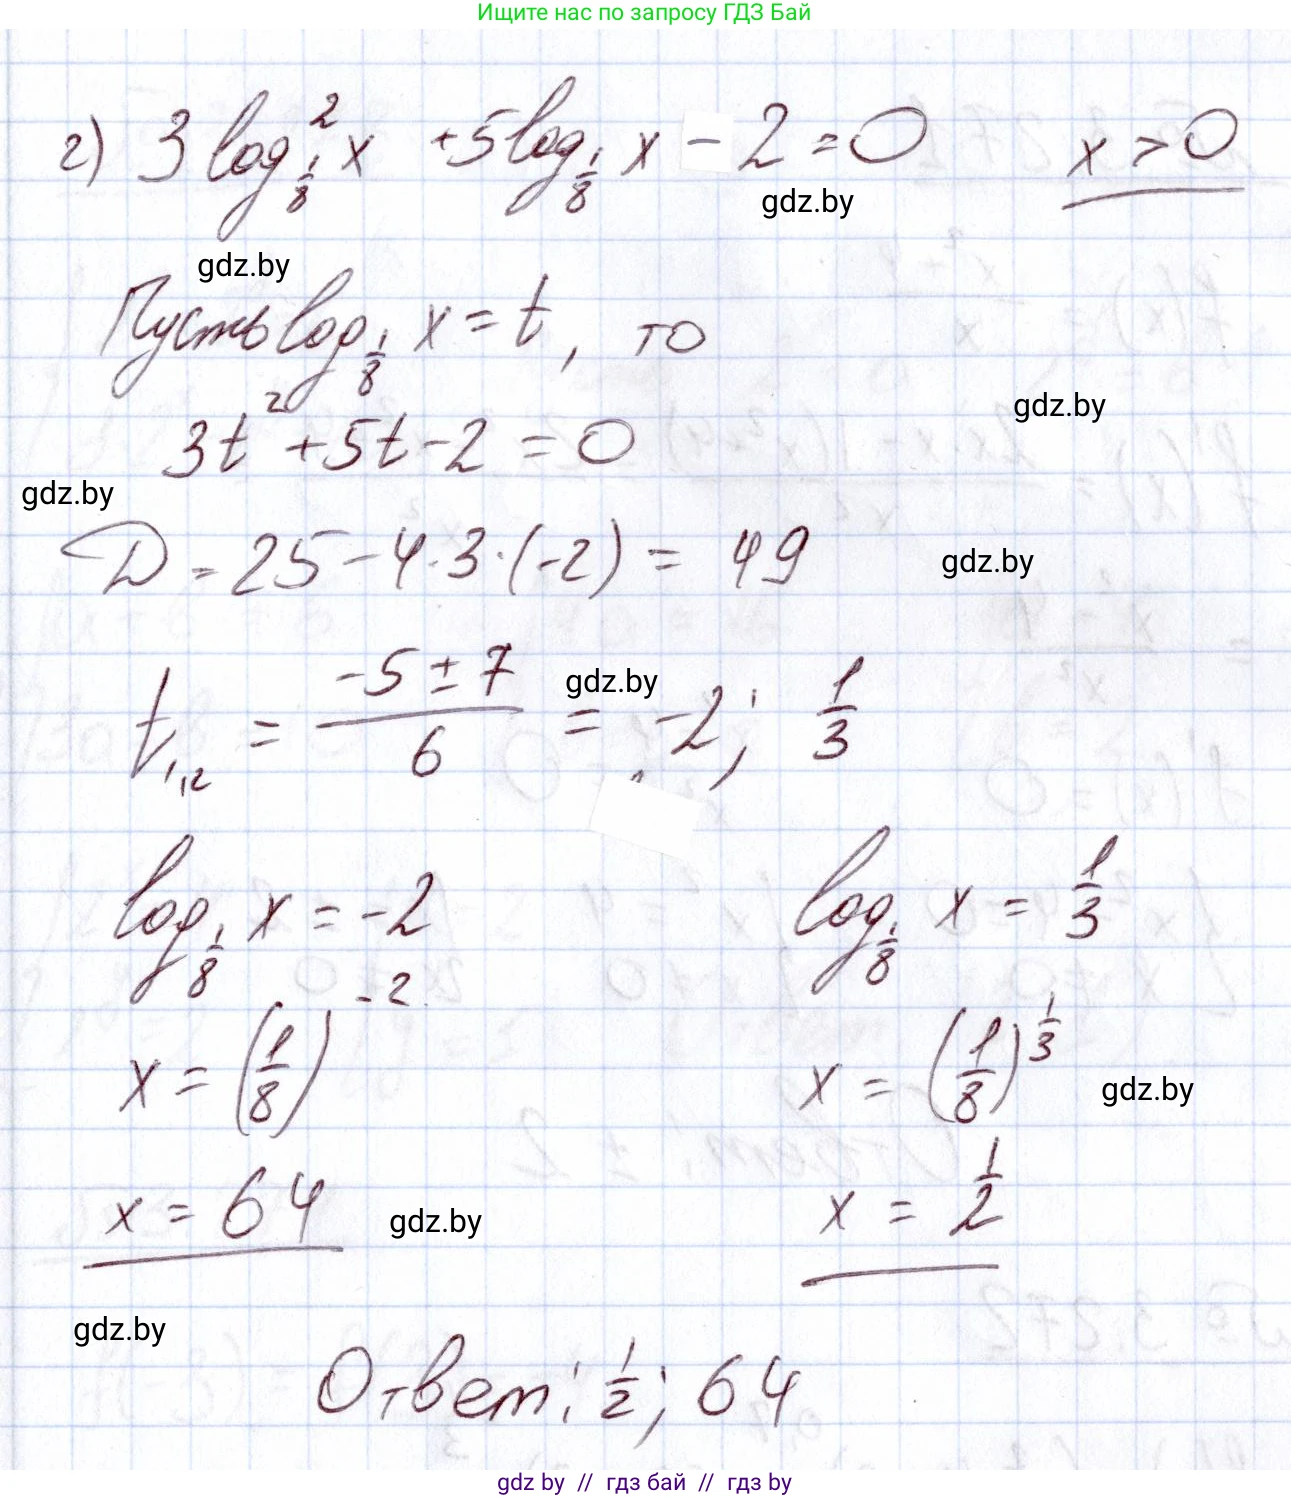 Ищите нас по запросу ГДЗ Бай
г) 3 log²_{1/8} x + 5 log_{1/8} x - 2 = 0    x > 0
gdz.by
gdz.by
Пусть log_{1/8} x = t, то
gdz.by
3t² + 5t - 2 = 0
gdz.by
D = 25 - 4·3·(-2) = 49
gdz.by
t_{1,2} = \frac{-5 ± 7}{6} = -2; \frac{1}{3}
gdz.by
log_{1/8} x = -2    log_{1/8} x = \frac{1}{3}
x = (\frac{1}{8})^{-2}    x = (\frac{1}{8})^{\frac{1}{3}}
gdz.by
x = 64    x = \frac{1}{2}
gdz.by
gdz.by
Ответ: \frac{1}{2}; 64
gdz by // гдз бай // гдз by